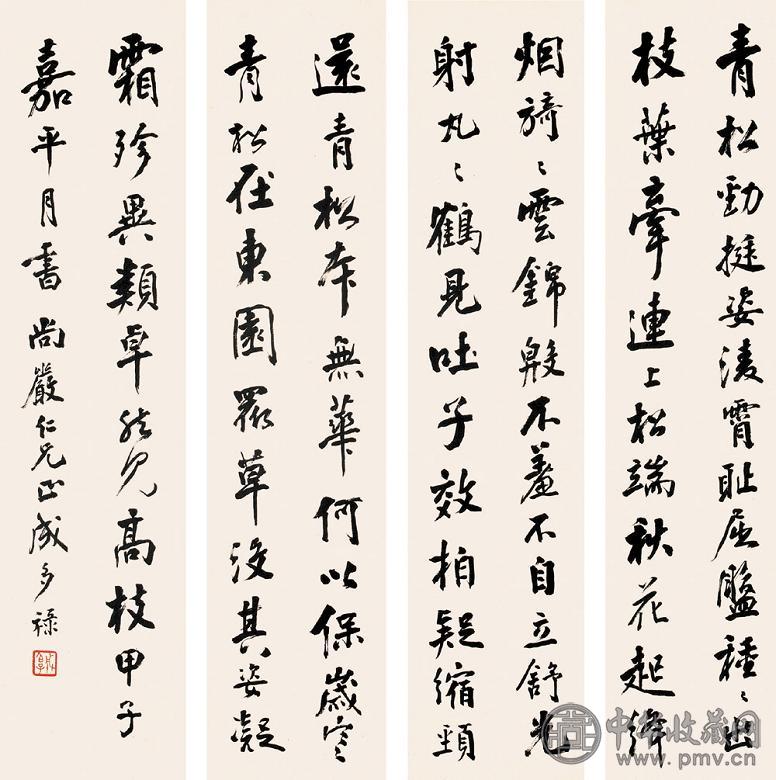 青松勁挺姿凌霄耻屈盤種〻出
枝葉牽連上松端秋花起絳
烟旖〻雲錦殷不羞不自立舒光
射丸〻鶴見吐子效柏疑縮頸
還青松本無華何以保歲寒
青松在東園眾草沒其姿凝
霜殄異類卓然見高枝甲子
嘉平月書尚嚴仁兄正成多祿
中华收藏网
www.pmv.cn